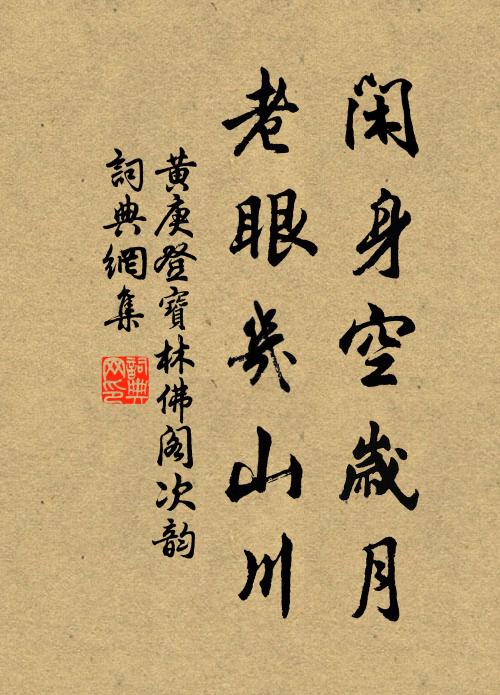 閑身空歲月
老眼幾山川
黃庚登寶林佛閣次韵
詞典網集
詞典
网印